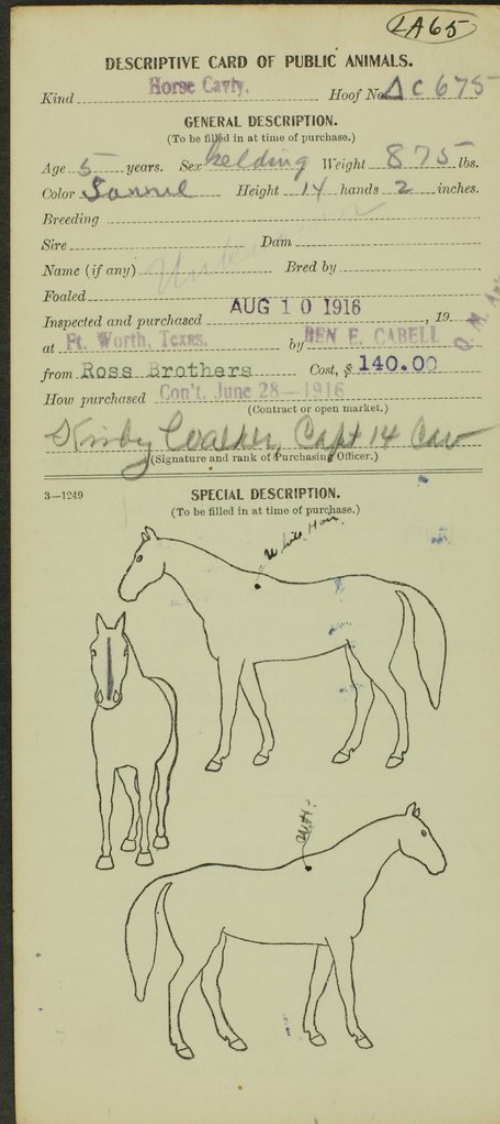 LA65
DESCRIPTIVE CARD OF PUBLIC ANIMALS.
Kind Horse Cavly. Hoof No. AC675
GENERAL DESCRIPTION.
(To be filled in at time of purchase.)
Age 5 years. Sex Gelding Weight 875 lbs.
Color Sorrel Height 14 hands 2 inches.
Breeding
Sire Dam
Name (if any) Unknown Bred by
Foaled
Inspected and purchased AUG 10 1916, 19
at Ft. Worth, Texas, by BEN E. CABELL Q. M.
from Ross Brothers Cost, $ 140.00
How purchased Con't. June 28—1916
(Contract or open market.)
Kirby Walker, Capt 14 Cav
(Signature and rank of Purchasing Officer.)
3—1249
SPECIAL DESCRIPTION.
(To be filled in at time of purchase.)
White Hair.
W.H.